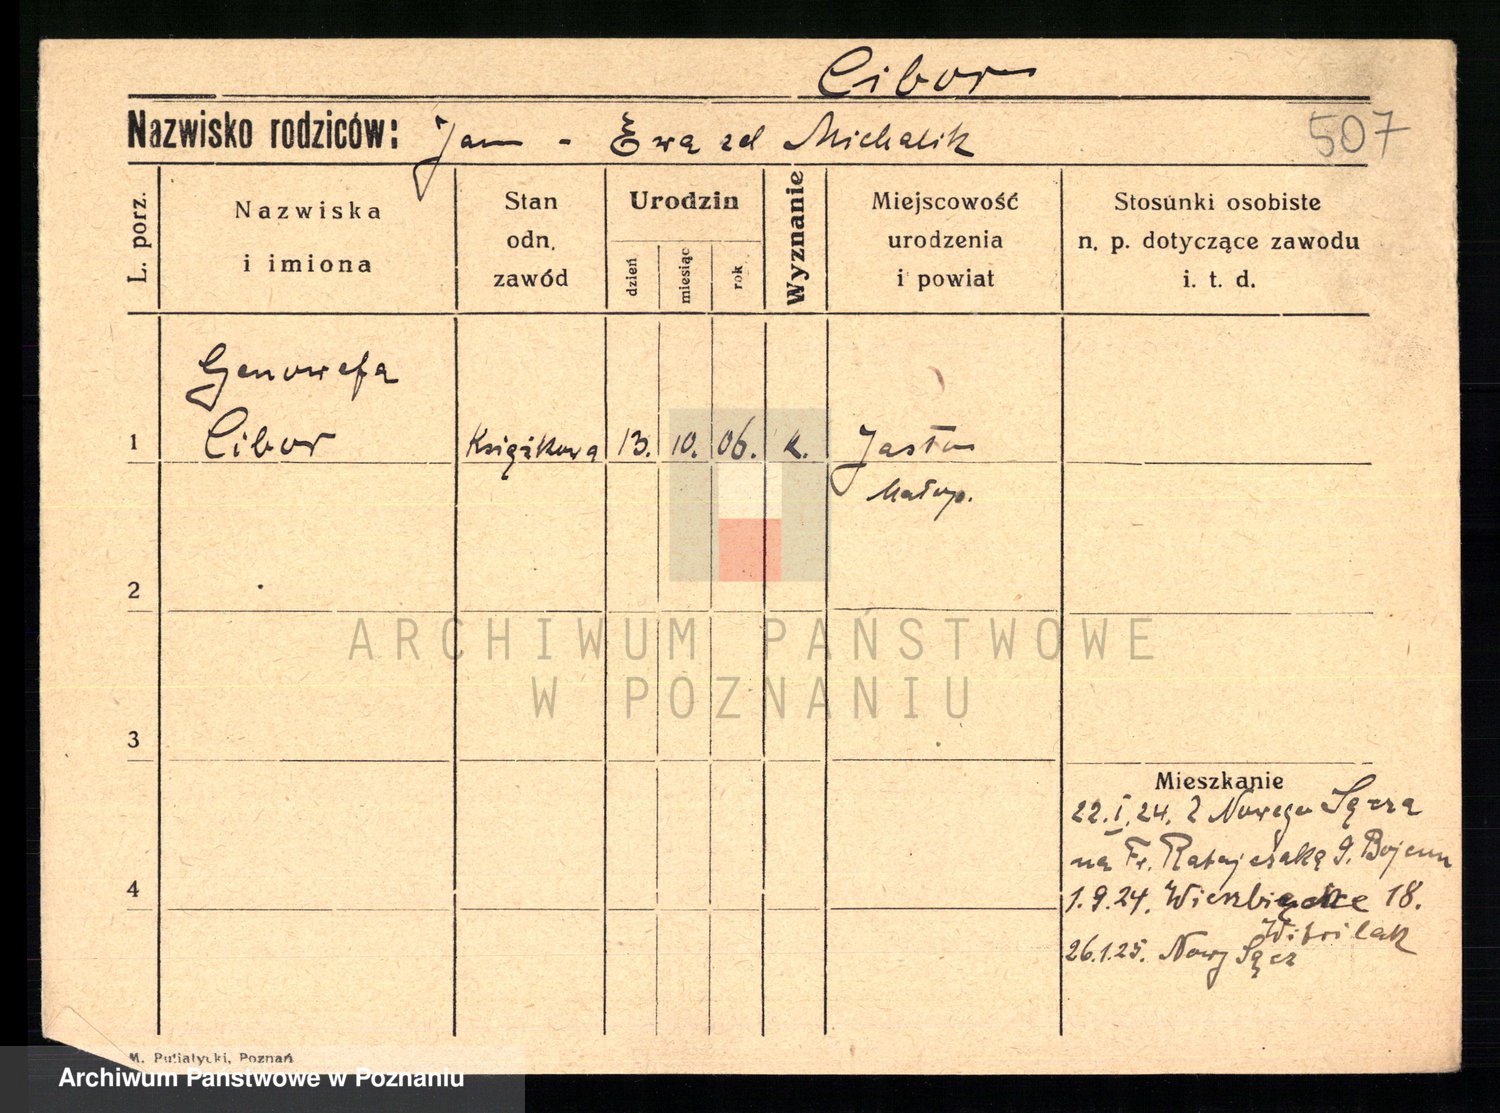 Cibor
Nazwisko rodziców: Jan - Ewa zd Michalik
507
L. porz.
Nazwiska
i imiona
Stan
odn.
zawód
Urodzin
dzień
miesiąc
rok
Wyznanie
Miejscowość
urodzenia
i powiat
Stosunki osobiste
n. p. dotyczące zawodu
i. t. d.
Genowefa
1 Cibor Książkowa 13. 10. 06. k.
Małop.
2
ARCHIWUM PAŃSTWOWE
W POZNANIU
3
Mieszkanie
22.I.24. Z Nowego Sącza
na Fr. Ratajczaka 9.
4
1.9.24. Wierzbięcice 18.
26.1.25. Nowy Sącz
M. Putiatycki, Poznań
Archiwum Państwowe w Poznaniu